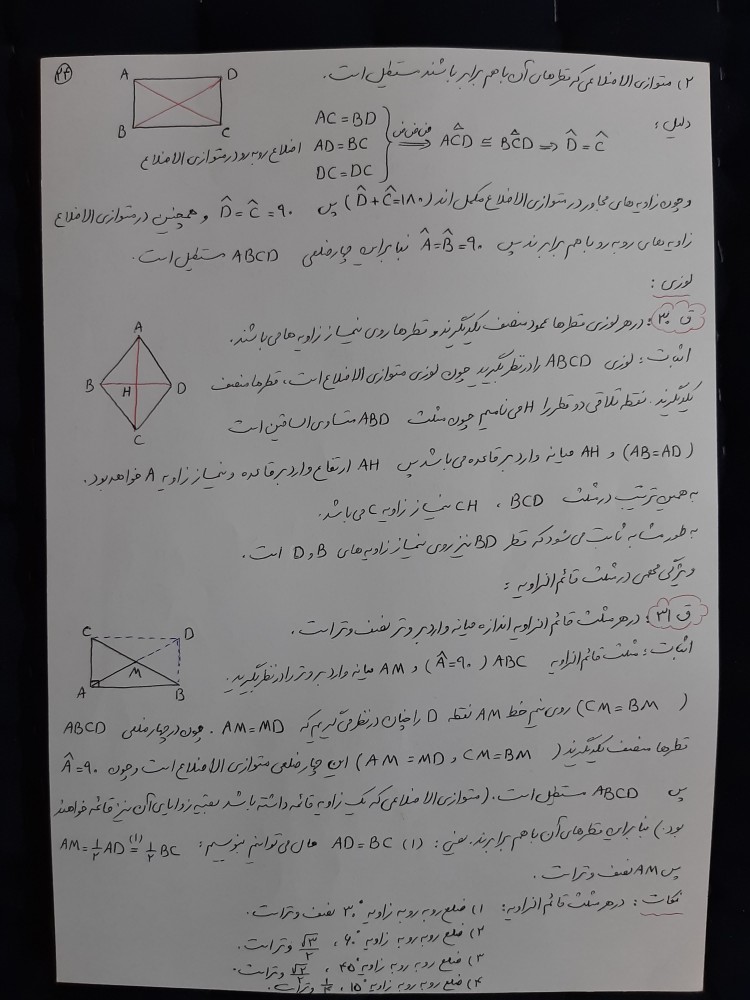 ۲۴
۲) متوازی الاضلاعی که قطرهای آن با هم برابر باشند مستطیل است.
A D
B C
دلیل:
AC = BD
AD = BC اضلاع روبه رو در متوازی الاضلاع
DC = DC
ض ض ض ⇒ ACD ≅ BCD ⇒ D̂ = Ĉ
و چون زاویه های مجاور در متوازی الاضلاع مکمل اند (D̂+Ĉ=۱۸۰) پس D̂=Ĉ=۹۰ و همچنین در متوازی الاضلاع
زاویه های روبه رو با هم برابرند پس Â=B̂=۹۰ بنابراین چهارضلعی ABCD مستطیل است.
لوزی:
ق ۳۰: در هر لوزی قطرها عمود منصف یکدیگرند و قطرها روی نیمساز زاویه ها می باشند.
A
B H D
C
اثبات: لوزی ABCD را در نظر بگیرید چون لوزی متوازی الاضلاع است، قطرها منصف
یکدیگرند. نقطه تلاقی دو قطر را H می نامیم چون مثلث ABD متساوی الساقین است
(AB=AD) و AH میانه وارد بر قاعده می باشد پس AH ارتفاع وارد بر قاعده و نیمساز زاویه A خواهد بود.
به همین ترتیب در مثلث BCD، CH نیمساز زاویه C می باشد.
به طور مشابه ثابت می شود که قطر BD نیز روی نیمساز زاویه های B و D است.
ویژگی مهمی در مثلث قائم الزاویه:
ق ۳۱: در هر مثلث قائم الزاویه اندازه میانه وارد بر وتر نصف وتر است.
C D
M
A B
اثبات: مثلث قائم الزاویه ABC (Â=۹۰) و AM میانه وارد بر وتر را در نظر بگیرید.
(CM = BM) روی نیم خط AM نقطه D را چنان در نظر می گیریم که AM=MD. چون در چهارضلعی ABCD
قطرها منصف یکدیگرند (AM=MD و CM=BM) این چهارضلعی متوازی الاضلاع است و چون Â=۹۰
پس ABCD مستطیل است. (متوازی الاضلاعی که یک زاویه قائمه داشته باشد بقیه زوایای آن نیز قائمه خواهند
بود.) بنابراین قطرهای آن با هم برابرند. یعنی: AD = BC (۱) حال می توانیم بنویسیم: AM=½AD (۱)= ½BC
پس AM نصف وتر است.
نکات: در هر مثلث قائم الزاویه: ۱) ضلع روبه رو به زاویه ۳۰° نصف وتر است.
۲) ضلع روبه رو به زاویه ۶۰°، √۳/۲ وتر است.
۳) ضلع روبه رو به زاویه ۴۵°، √۲/۲ وتر است.
۴) ضلع روبه رو به زاویه ۱۵°، ۱/۴ وتر است.